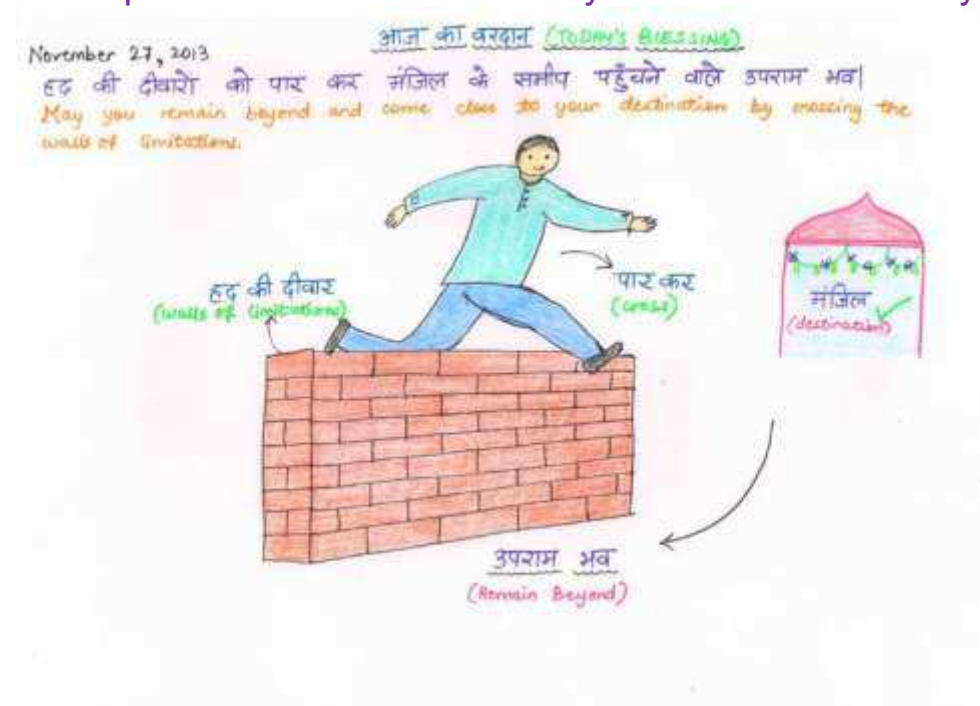 आज का वरदान (TODAY'S BLESSING)
November 27, 2013
हद की दीवारो को पार कर मंजिल के समीप पहुँचने वाले उपराम भव|
May you remain beyond and come close to your destination by crossing the
walls of limitations.
हद की दीवार
(walls of limitations)
पार कर
(cross)
मंजिल
(destination)
उपराम भव
(Remain Beyond)